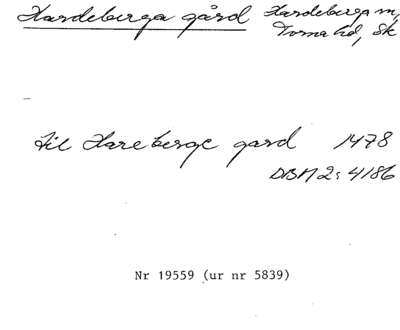 Hardeberga gård Hardeberga sn,
Torna hd, Sk
til Hareberge gard 1478
DBN 2:4186
Nr 19559 (ur nr 5839)